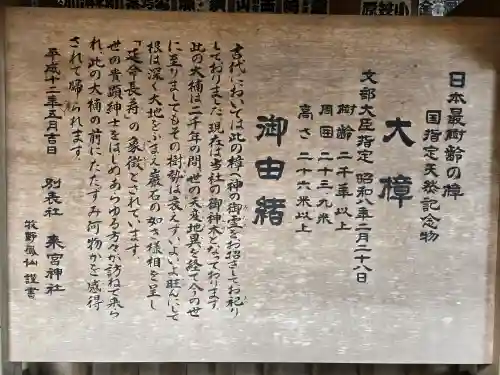 日本最樹齢の樟
国指定天然記念物
大樟
文部大臣指定 昭和八年二月二十八日
樹齢 二千年以上
周囲 二十三、九米
高さ 二十六米以上
御由緒
古代においては此の樟へ神の御霊をお招きしてお祀り
しておりました 現在は当社の御神木となっております
此の大楠は二千年の間、世の天変地異を経て今の世
に至りましてもその樹勢は衰えず、いよいよ旺んにして
根は深く大地をふまえ巌石の如き様相を呈し
「延命長寿」の象徴とされています。
世の貴顕紳士をはじめあらゆる方々が訪ねて来ら
れ、此の大楠の前にたたずみ何物かを感得
されて帰られます。
平成十二年五月吉日
別表社 来宮神社
牧野 仙 謹書